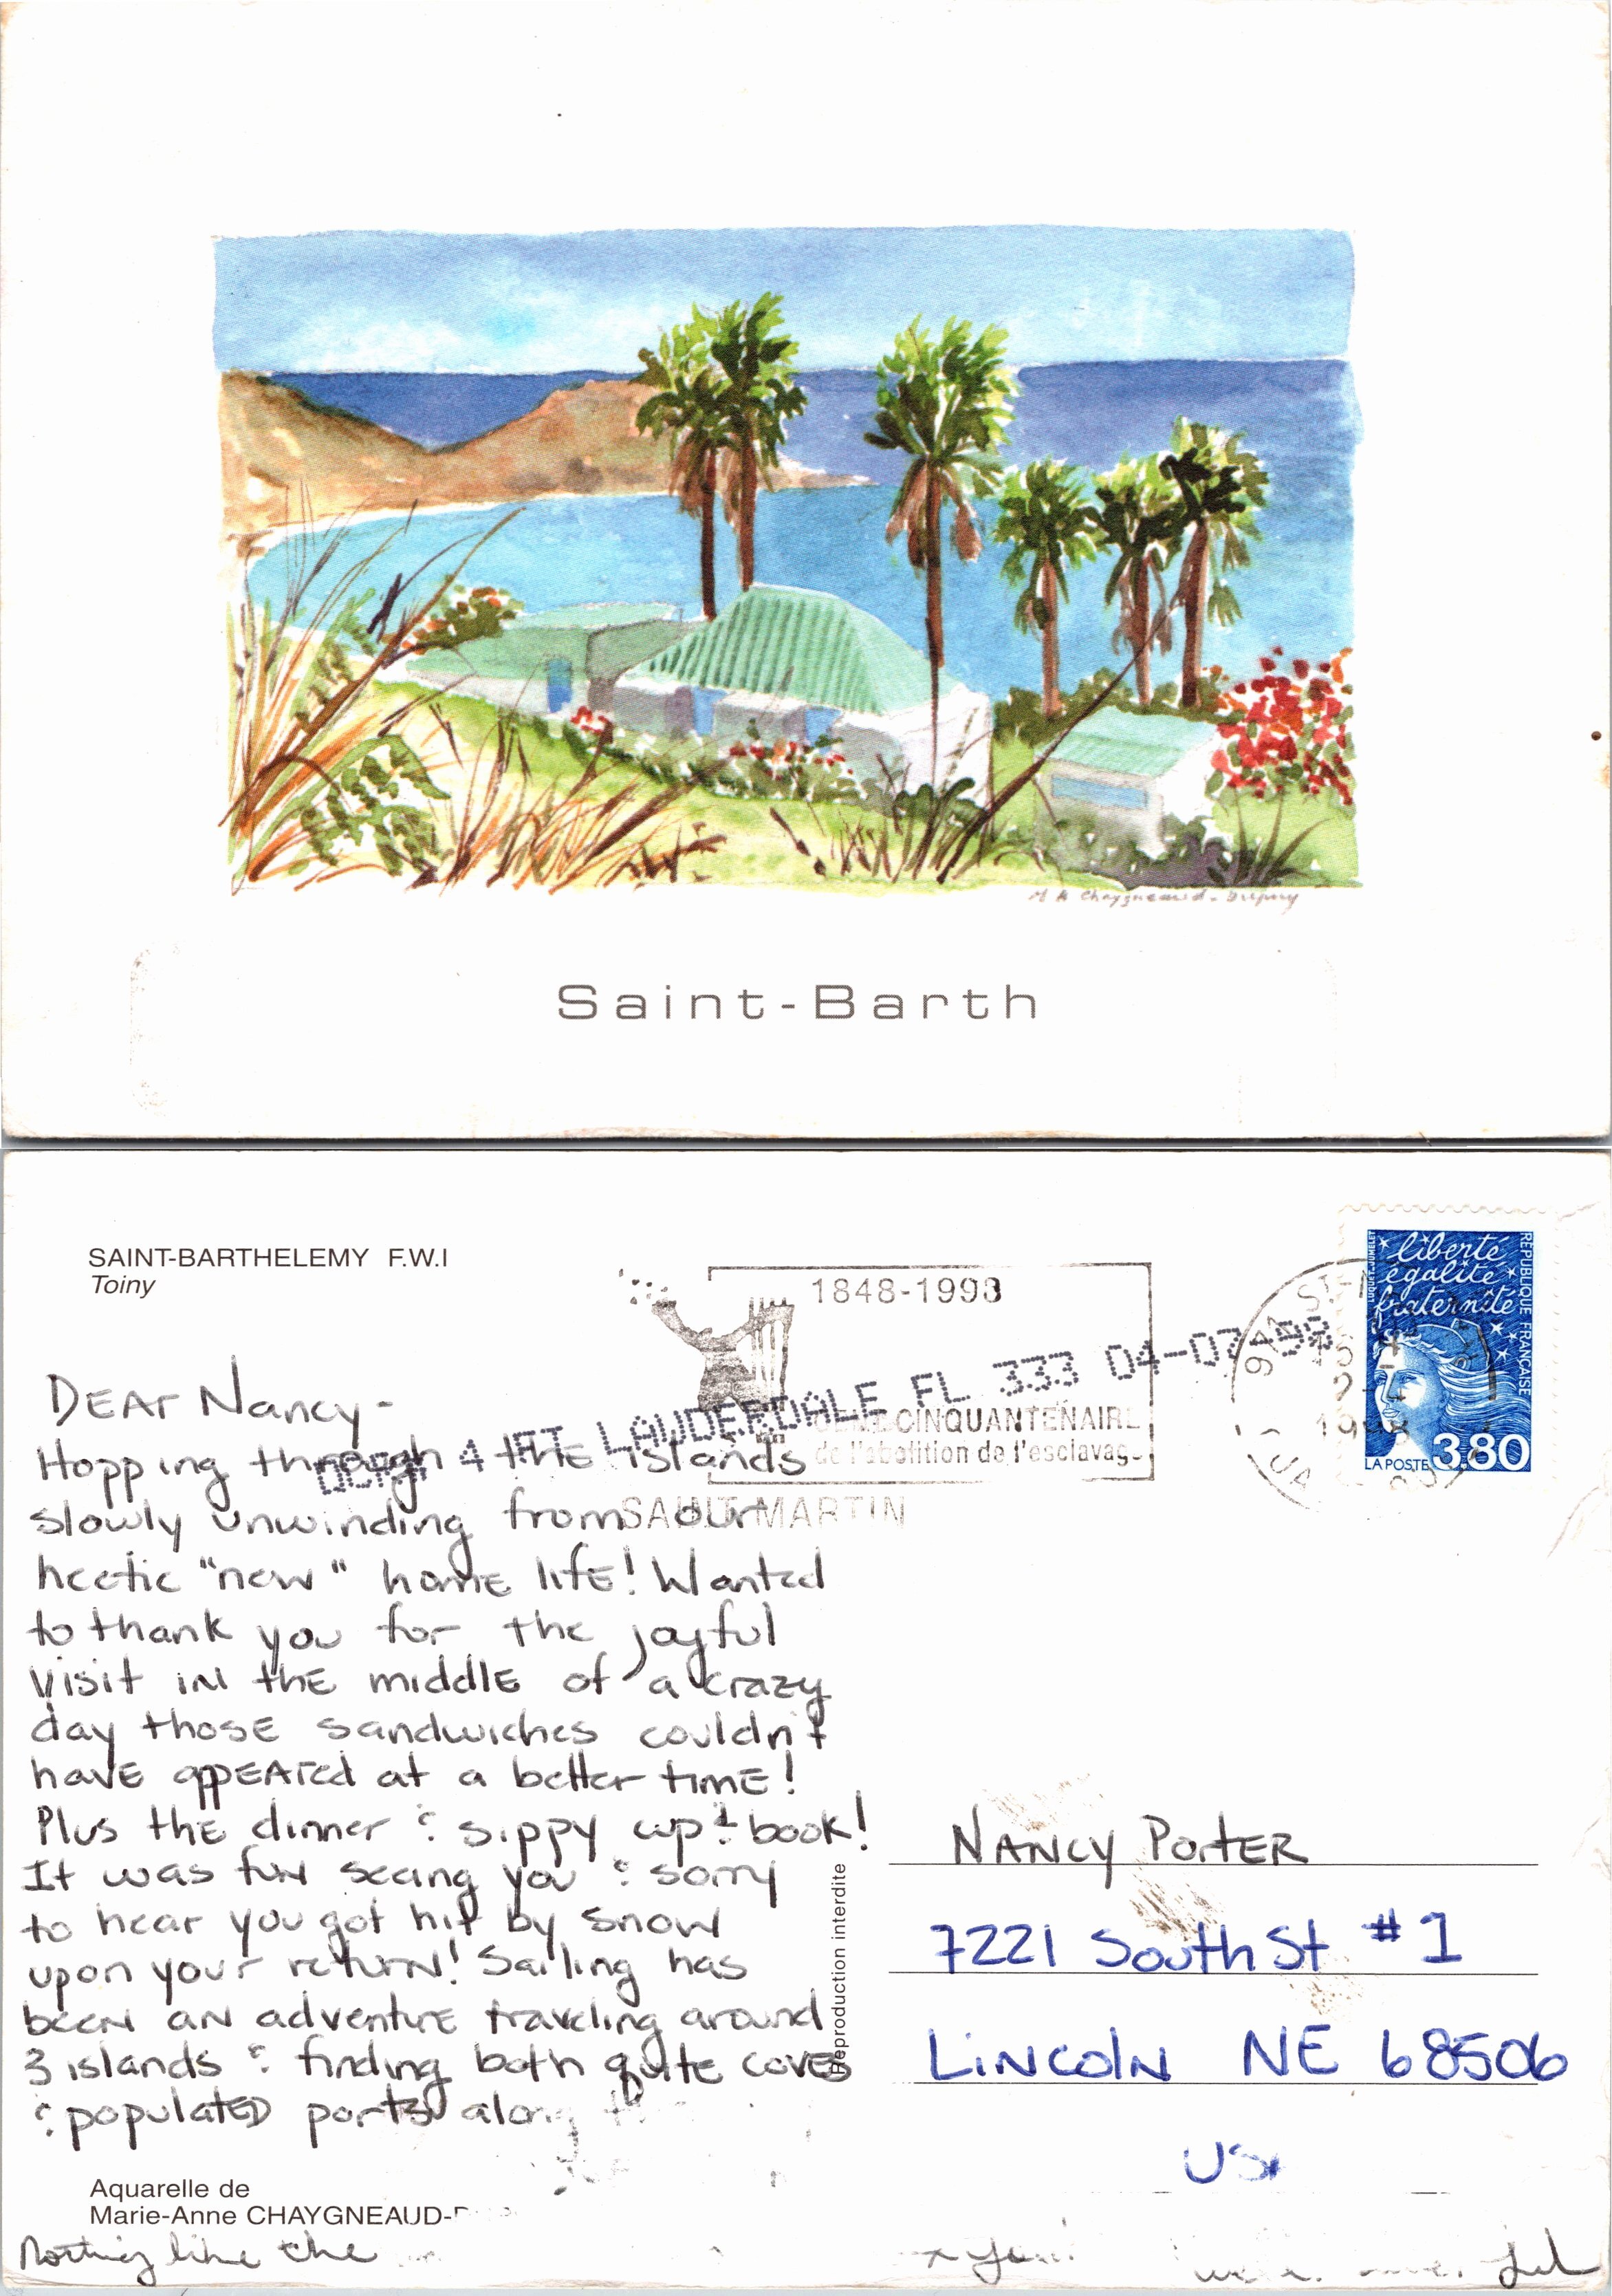 M A Chaygneaud-Dupuy
Saint-Barth
SAINT-BARTHELEMY F.W.I
Toiny
1848-1998
CINQUANTENAIRE
de l'abolition de l'esclavag
SAINT MARTIN
FT LAUDERDALE FL 333 04-07-98
971 ST-
1998
liberté
égalité
fraternité
RÉPUBLIQUE FRANÇAISE
LUQUET-JUMELET
LA POSTE 3,80
DEAr Nancy-
Hopping through the islands
slowly unwinding from our
hectic "new" home life! Wanted
to thank you for the joyful
visit in the middle of a crazy
day those sandwiches couldn't
have appeared at a better time!
Plus the dinner & sippy cup & book!
It was fun seeing you & sorry
to hear you got hit by snow
upon your return! Sailing has
been an adventure traveling around
3 islands & finding both quite coves
& populated ports along
Aquarelle de
Marie-Anne CHAYGNEAUD-
Nothing like the
Reproduction interdite
NANCY PortER
7221 South St #1
LINColN NE 68506
USA